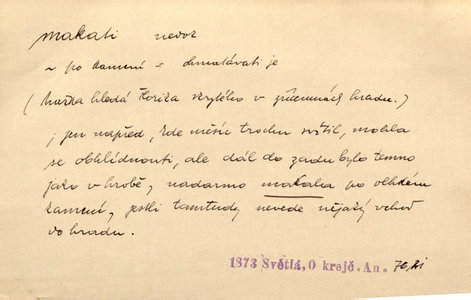 makati nedok
~ po kameni = ohmatávati je
(Anežka hledá Jiříka skrytého v zříceninách hradu.)
; jen napřed, kde měsíc trochu svítil, mohla
se ohlédnouti, ale dál do zadu bylo temno
jako v hrobě, nadarmo makala po vlhkém
kamení, jestli tamtudy nevede nějaký vchod
do hradu.
1873 Světlá, O krejč. An. 76